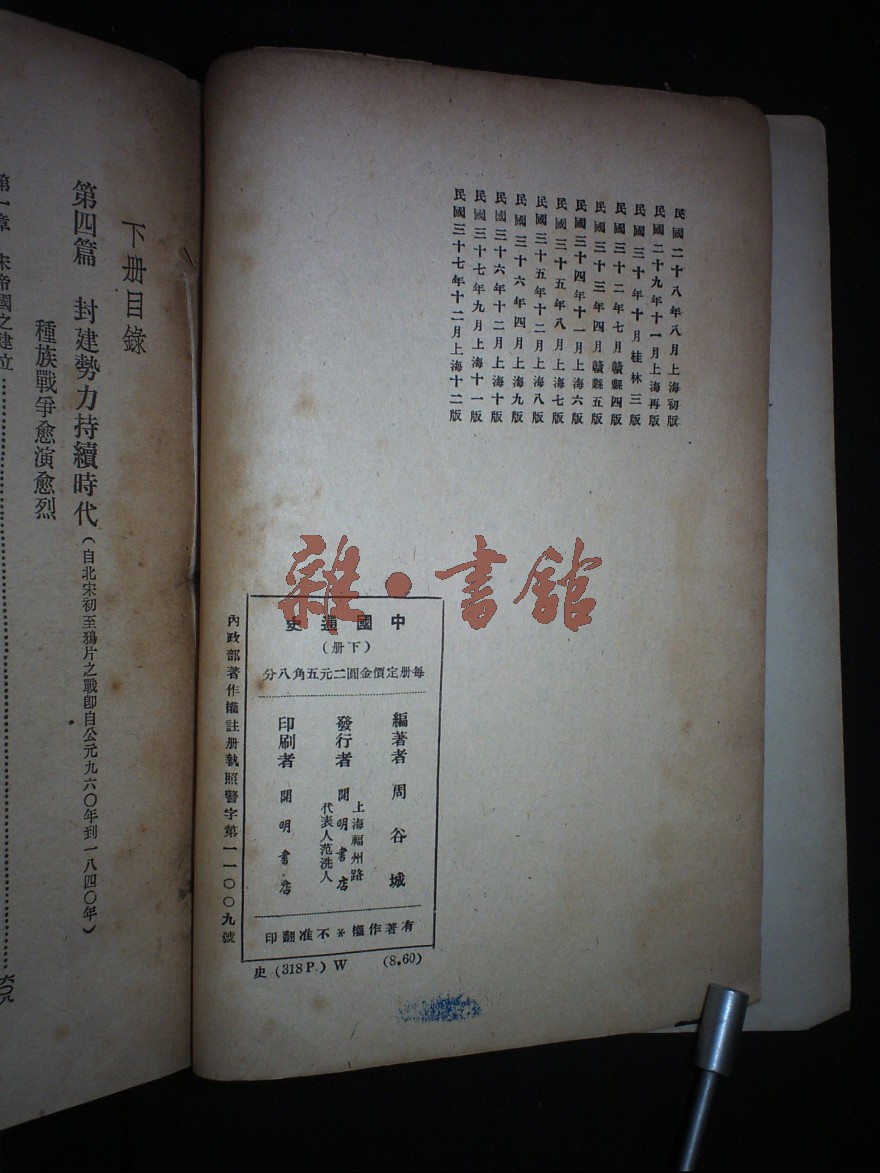 民國二十八年八月上海初版
民國二十九年十一月上海再版
民國三十年十月桂林三版
民國三十二年七月贛縣四版
民國三十三年四月贛縣五版
民國三十四年十一月上海六版
民國三十五年八月上海七版
民國三十五年十二月上海八版
民國三十六年四月上海九版
民國三十六年十二月上海十版
民國三十七年九月上海十一版
民國三十七年十二月上海十二版
雜·書舘
中國通史
(下冊)
每冊定價金圓二元五角八分
編著者 周谷城
上海福州路
發行者 開明書店
代表人范洗人
印刷者 開明書店
有著作權*不准翻印
內政部著作權註冊執照警字第一一〇〇九號
史 (318P.) W (8.60)
下册目錄
第四篇 封建勢力持續時代(自北宋初至鴉片之戰卽自公元九六〇年到一八四〇年)
種族戰爭愈演愈烈
第一章 宋帝國之建立